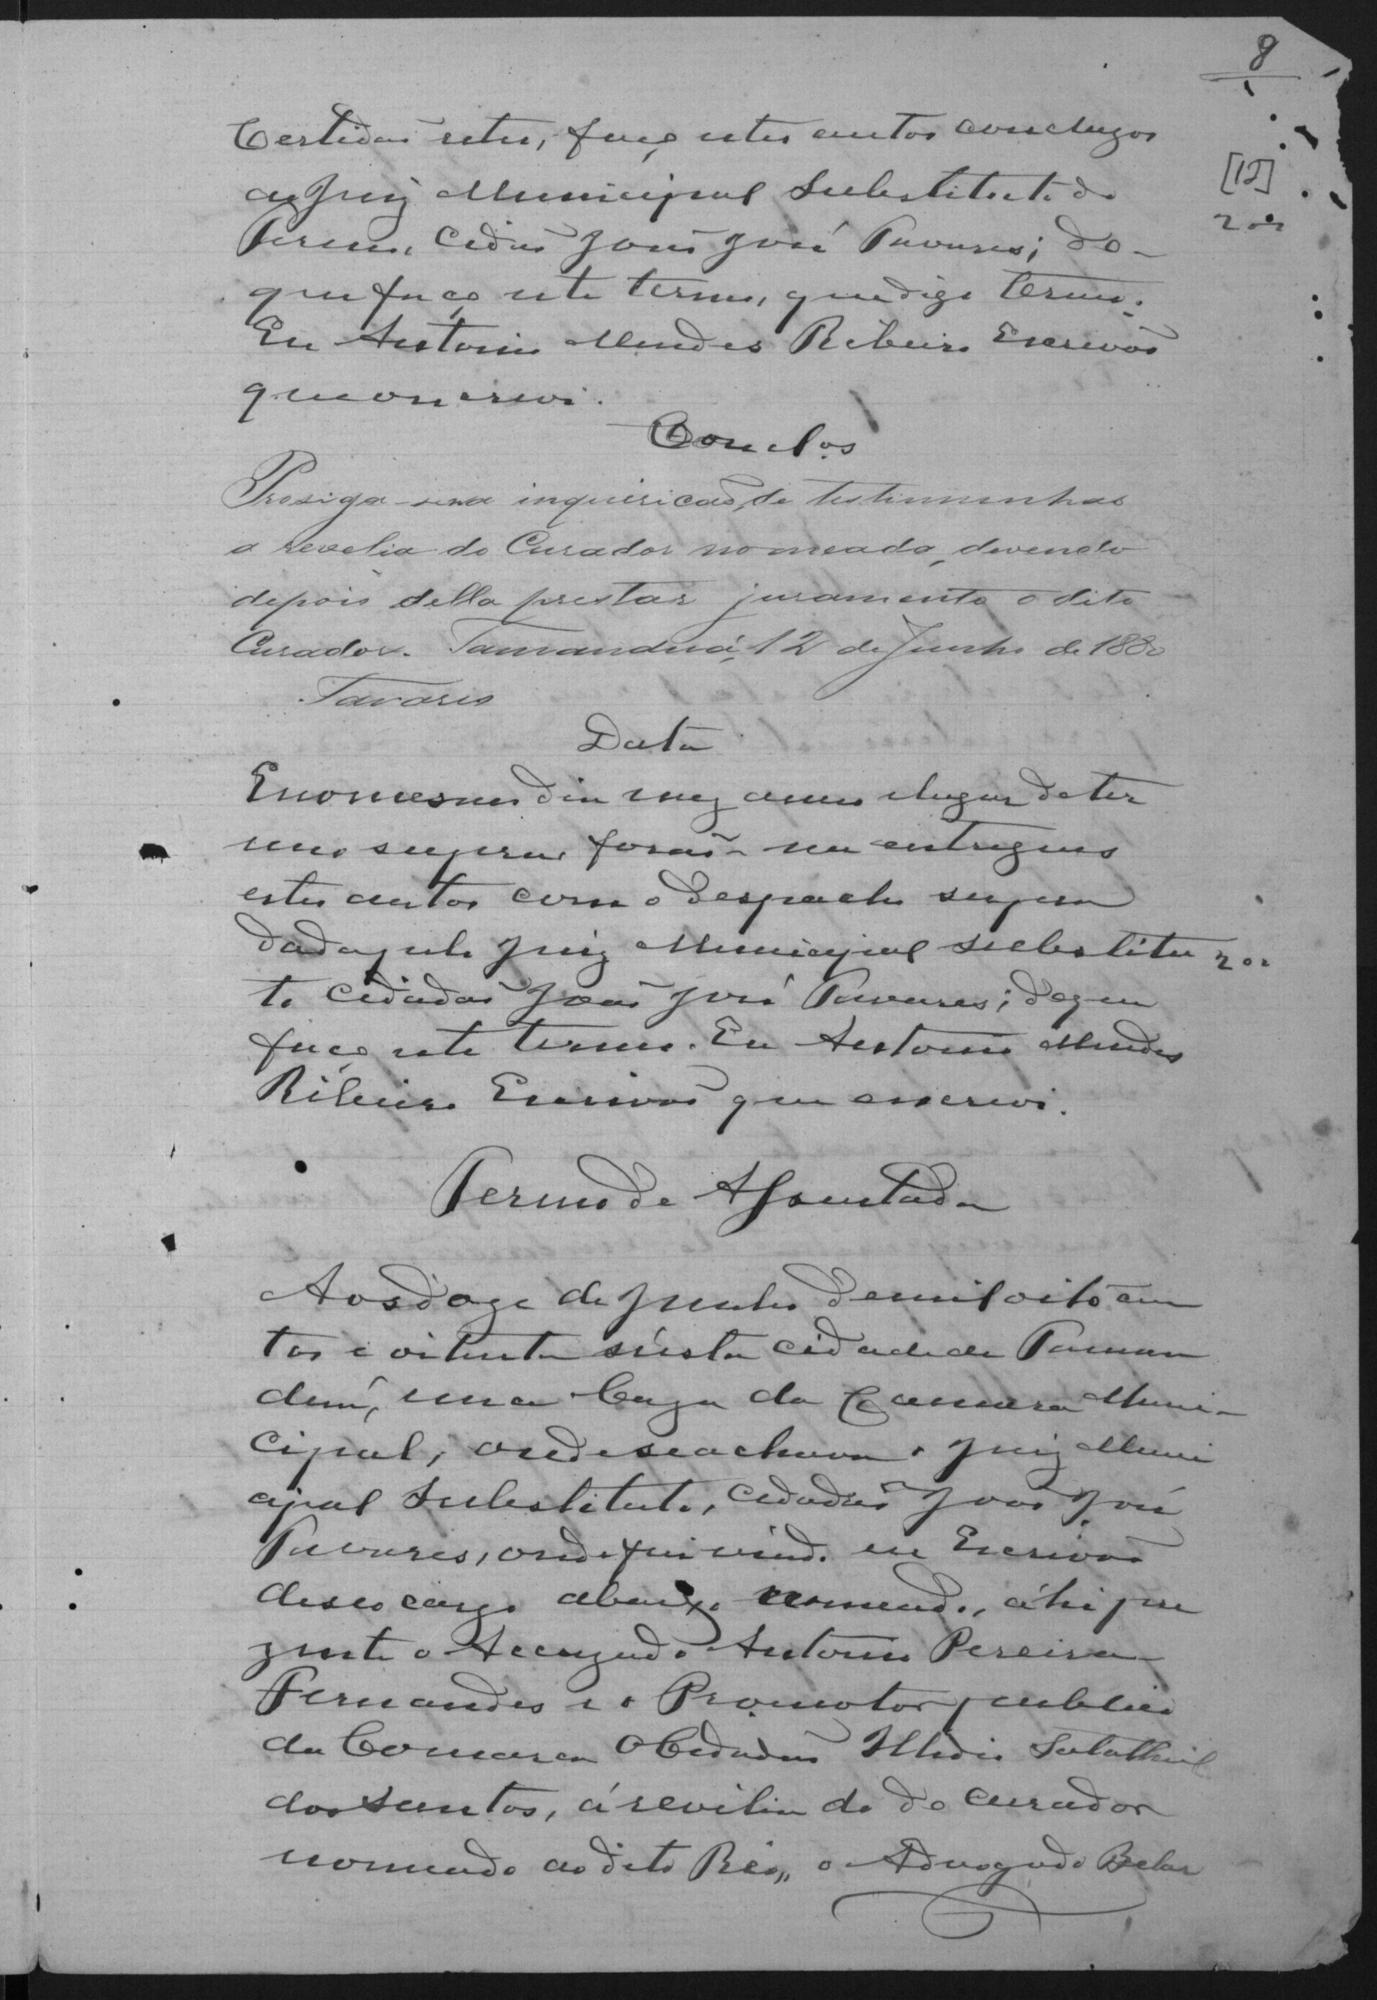 8
[12]
200
Certidão retro, faço estes autos concluzos
ao Juiz Municipal Substituto do
Termo, Cidão João José Tavares; do
que faço este termo, que digo termo.
Eu Antonio Mendes Ribeiro Escrivão
que o escrevi.
Conclos
Prosiga-se na inquirição, de testimunhas
a revelia do Curador nomeado, devendo
depois della prestar juramento o dito
Curador. Tamanduá, 12 de Junho de 1880
Tavares
Data
E no mesmo dia mez anno e lugar do ter
mo supra, forão me entregues
estes autos com o despacho supra
dado pelo Juiz Municipal substitu
200
to cidadão João José Tavares; do que
faço este termo. Eu Antonio Mendes
Ribeiro Escrivão que o escrevi.
Termo de Assentada
Aos doze de Junho de mil oito cen
tos e oitenta n'esta cidade de Taman
duá, em a Caza da Camara Muni-
cipal, onde se achava o Juiz Muni
cipal Substituto, cidadão João José
Tavares, onde fui vindo eu Escrivão
de seo cargo abaixo nomeado, ahi pre
zente o Accuzado Antonio Pereira
Fernandes e o Promotor publico
da Comarca o Cidadão Illidio Salathiel
dos Santos, á revilia do do curador
nomeado ao dito Réo, o Advogado Belar